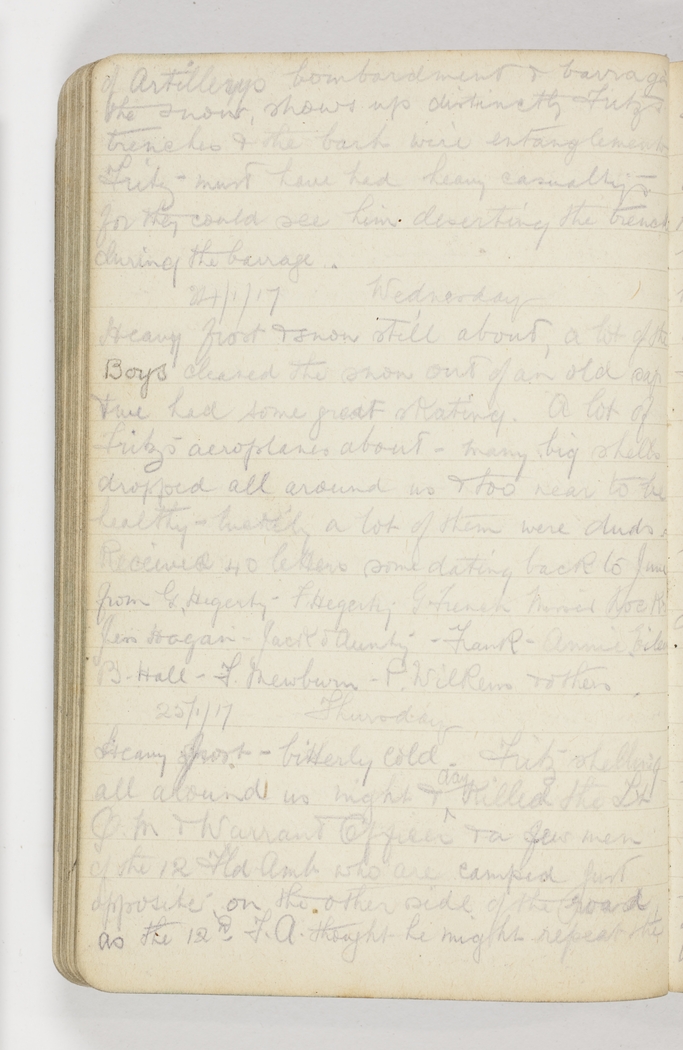 of Artillerys bombardment & barrage
the snow, shows up distinctly Fritz's
trenches & the barb wire entanglements
Fritz - must have had heavy casualtys
for they could see him deserting the trench
during the barrage ..
24/1/17 Wednesday
Heavy frost & snow still about, a lot of the
Boys cleared the snow out of an old sap
& we had some great skating. A lot of
Fritz's aeroplanes about - many big shells
dropped all around us & too near to be
healthy - luckily a lot of them were duds.
Received 40 letters some dating back to June
from G. Hegerty - F. Hegerty G. French
Jim Hogan - Jack & Aunty - Frank - Annie
B. Hall - F. Mewburn - P. Wilkens & others
25/1/17 Thursday
Heavy frost - bitterly cold. Fritz shelling
all around us night & day Killed the Lt
Q.M & Warrant Officer & a few men
of the 12 Fld Amb who are camped just
opposite on the other side of the road,
as the 12th F.A. thought he might repeat the